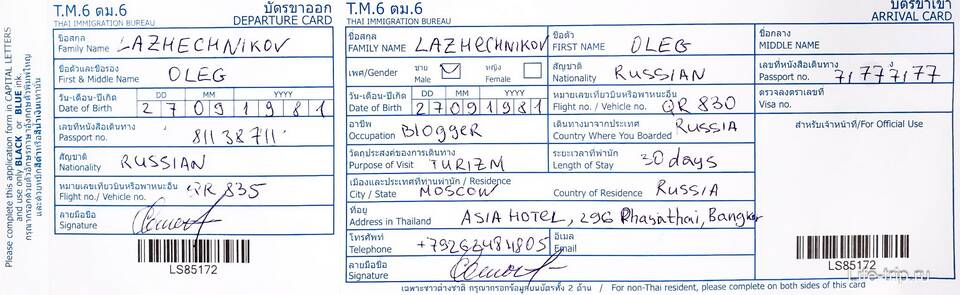 T.M.6 ตม.6
THAI IMMIGRATION BUREAU
บัตรขาออก
DEPARTURE CARD
ชื่อสกุล
Family Name LAZHECHNIKOV
ชื่อตัวและชื่อรอง
First & Middle Name OLEG
วัน-เดือน-ปีเกิด
Date of Birth DD MM YYYY
27 09 1981
เลขที่หนังสือเดินทาง
Passport no. 81138711
สัญชาติ
Nationality RUSSIAN
หมายเลขเที่ยวบินหรือพาหนะอื่น
Flight no./ Vehicle no. QR 835
ลายมือชื่อ
Signature
LS85172
Please complete this application form in CAPITAL LETTERS
and use only BLACK or BLUE ink.
T.M.6 ตม.6
THAI IMMIGRATION BUREAU
บัตรขาเข้า
ARRIVAL CARD
ชื่อสกุล
FAMILY NAME LAZHECHNIKOV
ชื่อตัว
FIRST NAME OLEG
ชื่อกลาง
MIDDLE NAME
เพศ/Gender
ชาย
Male
หญิง
Female
สัญชาติ
Nationality RUSSIAN
เลขที่หนังสือเดินทาง
Passport no.
วัน-เดือน-ปีเกิด
Date of Birth DD MM YYYY
27 09 1981
หมายเลขเที่ยวบินหรือพาหนะอื่น
Flight no. / Vehicle no. QR 830
ตรวจลงตราเลขที่
Visa no.
อาชีพ
Occupation BloggER
เดินทางมาจากประเทศ
Country Where You Boarded RUSSIA
สำหรับเจ้าหน้าที่/For Official Use
วัตถุประสงค์ของการเดินทาง
Purpose of Visit TURIZM
ระยะเวลาที่พำนัก
Length of Stay 30 days
เมืองและประเทศที่ท่านพำนัก / Residence
City / State MOSCOW
Country of Residence RUSSIA
ที่อยู่
Address in Thailand ASIA HOTEL, 296 Phayathai, Bangkok
โทรศัพท์
Telephone
อีเมล
Email
ลายมือชื่อ
Signature
LS85172
เฉพาะชาวต่างชาติ กรุณากรอกข้อมูลบนบัตรทั้ง 2 ด้าน / For non-Thai resident, please complete on both sides of this card
Life-trip.ru